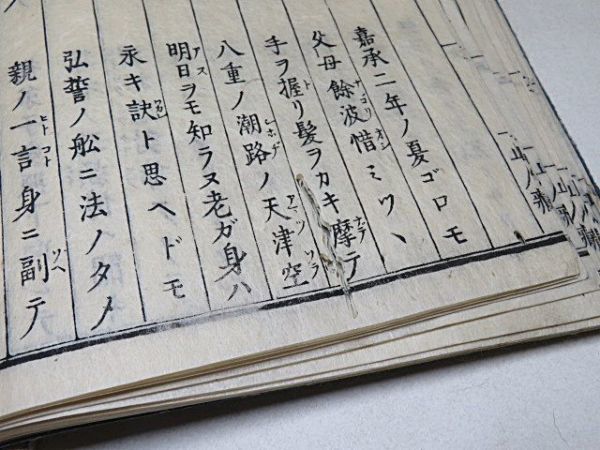 嘉承二年ノ夏ゴロモ
父母餘波惜ミツヽ
手ヲ握リ髮ヲカキ摩テ
八重ノ潮路ノ天津空
明日ヲモ知ラヌ老ガ身ハ
永キ訣ト思ヘドモ
弘誓ノ舩ニ法ノタメ
親ノ一言身ニ副テ